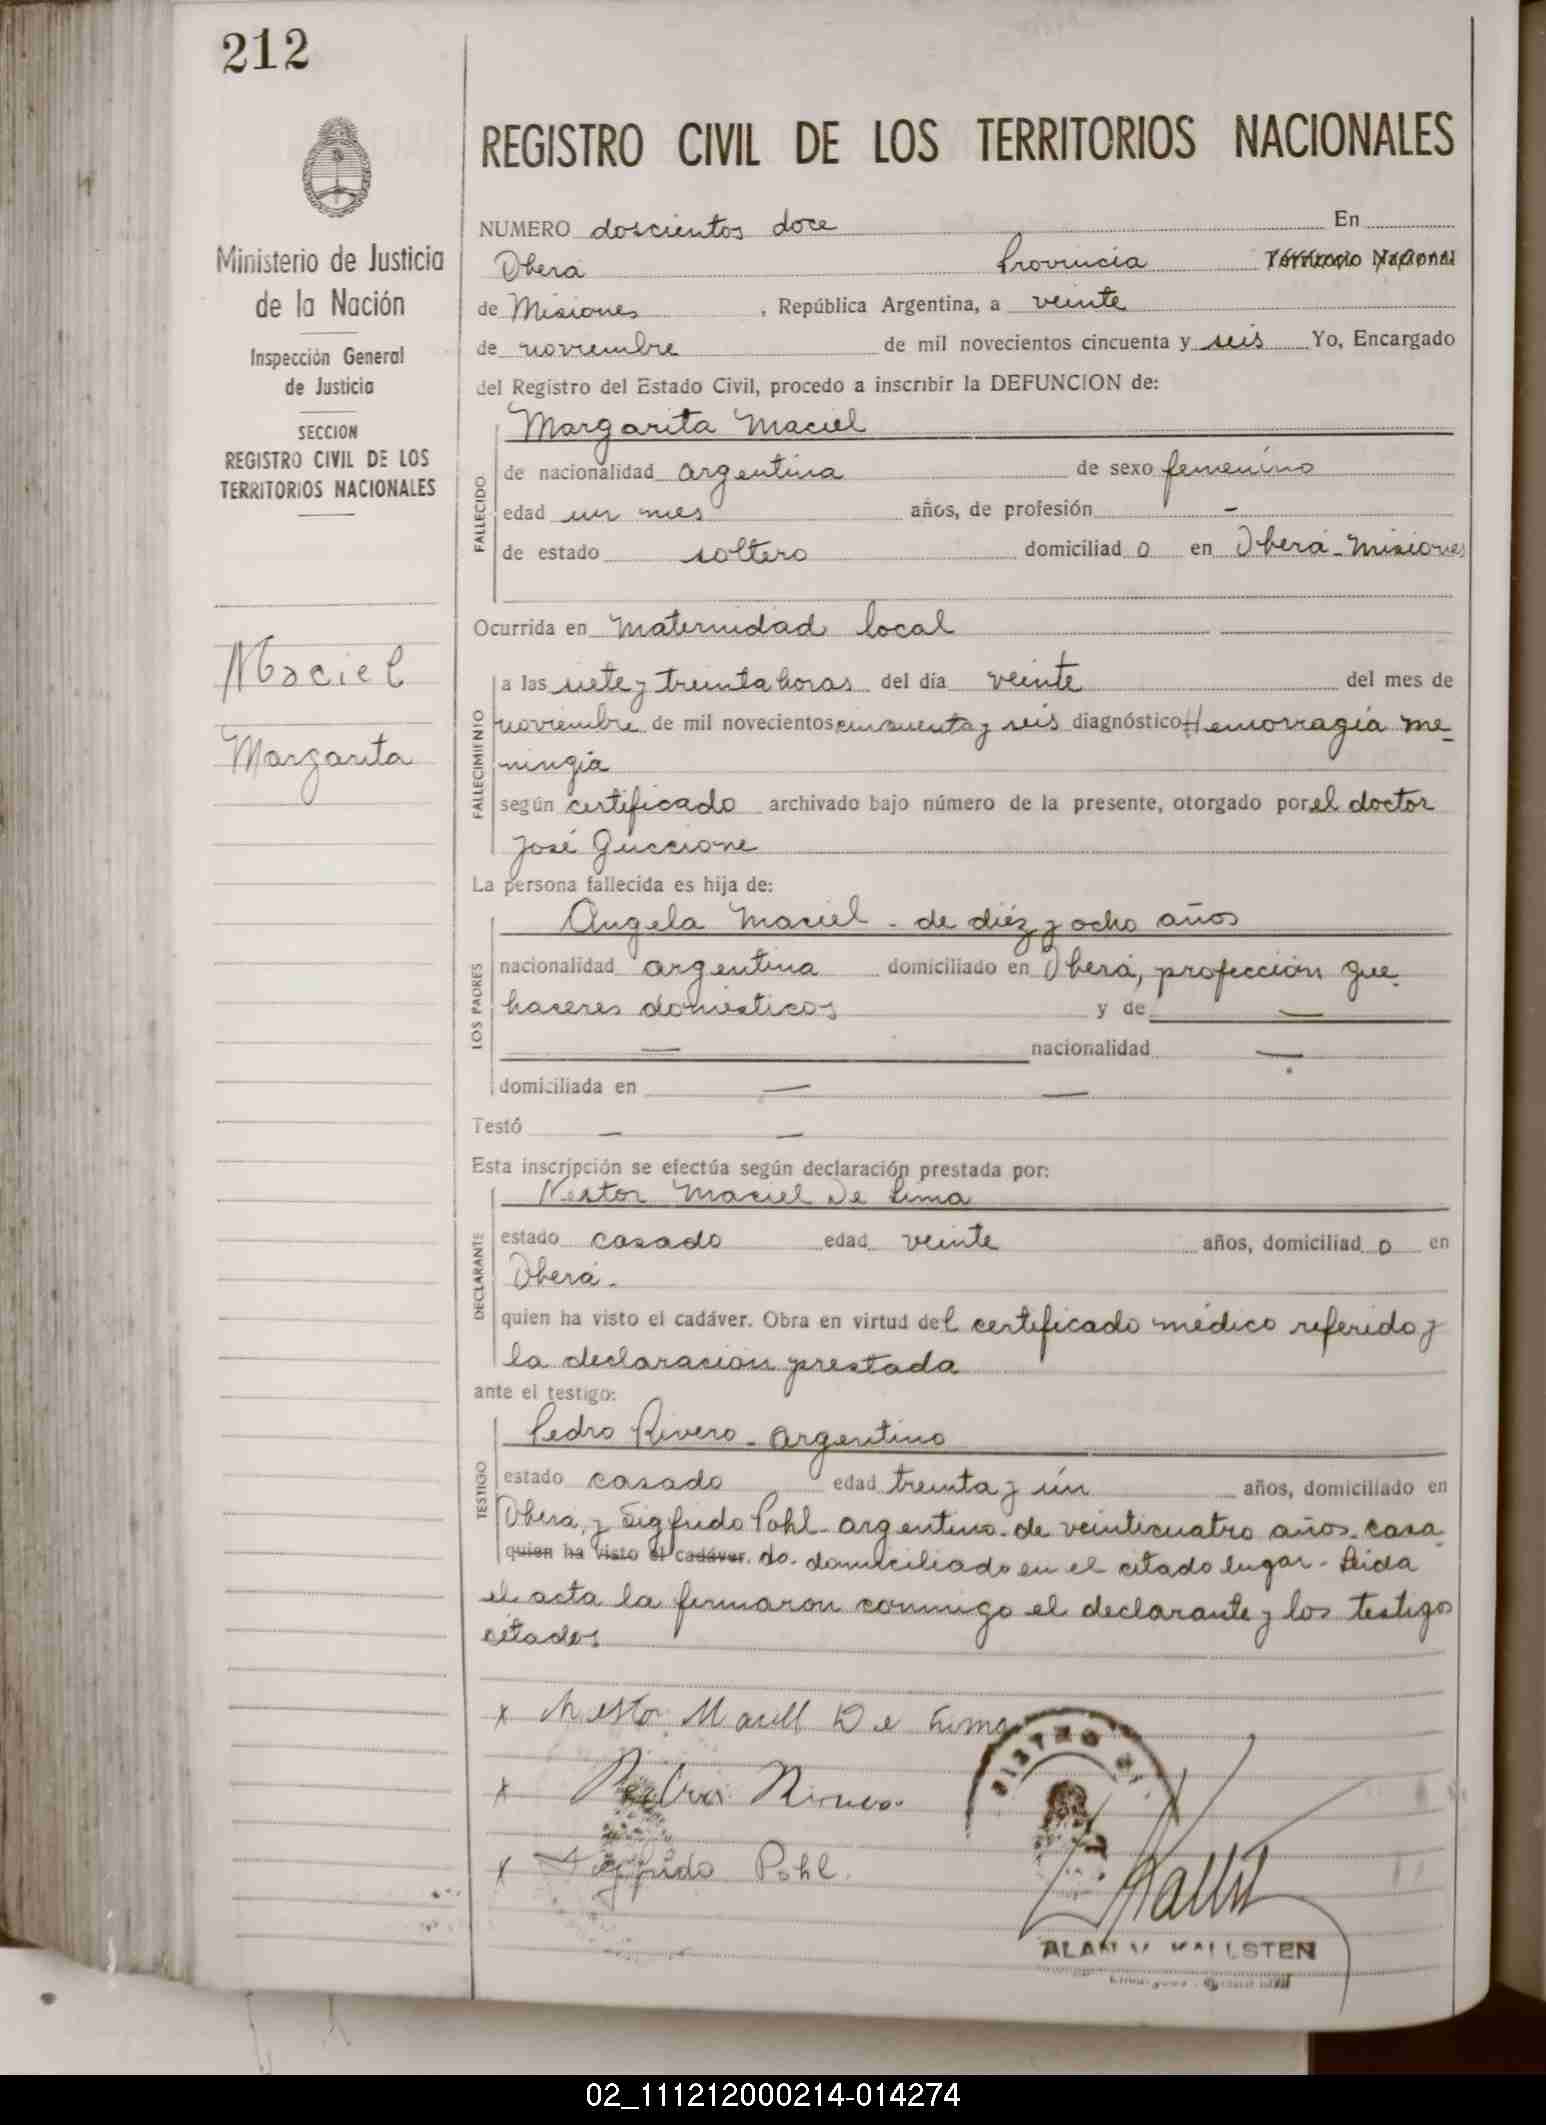 212
REGISTRO CIVIL DE LOS TERRITORIOS NACIONALES
Ministerio de Justicia
de la Nación
Inspección General
de Justicia
SECCION
REGISTRO CIVIL DE LOS
TERRITORIOS NACIONALES
Maciel
Margarita
NUMERO doscientos doce En
Oberá Provincia Territorio Nacional
de Misiones, República Argentina, a veinte
de noviembre de mil novecientos cincuenta y seis Yo, Encargado
del Registro del Estado Civil, procedo a inscribir la DEFUNCION de:
Margarita Maciel
FALLECIDO
de nacionalidad argentina de sexo femenino
edad un mes años, de profesión -
de estado soltero domiciliad o en Oberá - Misiones
Ocurrida en Maternidad local
FALLECIMIENTO
a las siete y treinta horas del día veinte del mes de
noviembre de mil novecientos cincuenta y seis diagnóstico Hemorragia me-
ningia
según certificado archivado bajo número de la presente, otorgado por el doctor
José Guccione
La persona fallecida es hija de:
LOS PADRES
Angela Maciel - de diéz y ocho años
nacionalidad argentina domiciliado en Oberá, profección que-
haceres domésticos y de —
— nacionalidad —
domiciliada en — —
Testó — —
Esta inscripción se efectúa según declaración prestada por:
Nestor Maciel De Lima
DECLARANTE
estado casado edad veinte años, domiciliad o en
Oberá.
quien ha visto el cadáver. Obra en virtud del certificado médico referido y
la declaracion prestada
ante el testigo:
Pedro Rivero - argentino
TESTIGO
estado casado edad treinta y ún años, domiciliado en
Oberá, y Sigfrido Pohl - argentino - de veinticuatro años - casa
quien ha visto el cadáver. do - domiciliado en el citado lugar - Leida
el acta la firmaron conmigo el declarante y los testigos
citados
x Nestor Maciel De Lima
x Pedro Rivero
x Sigfrido Pohl.
ALAN V. KALLSTEN
02_111212000214-014274